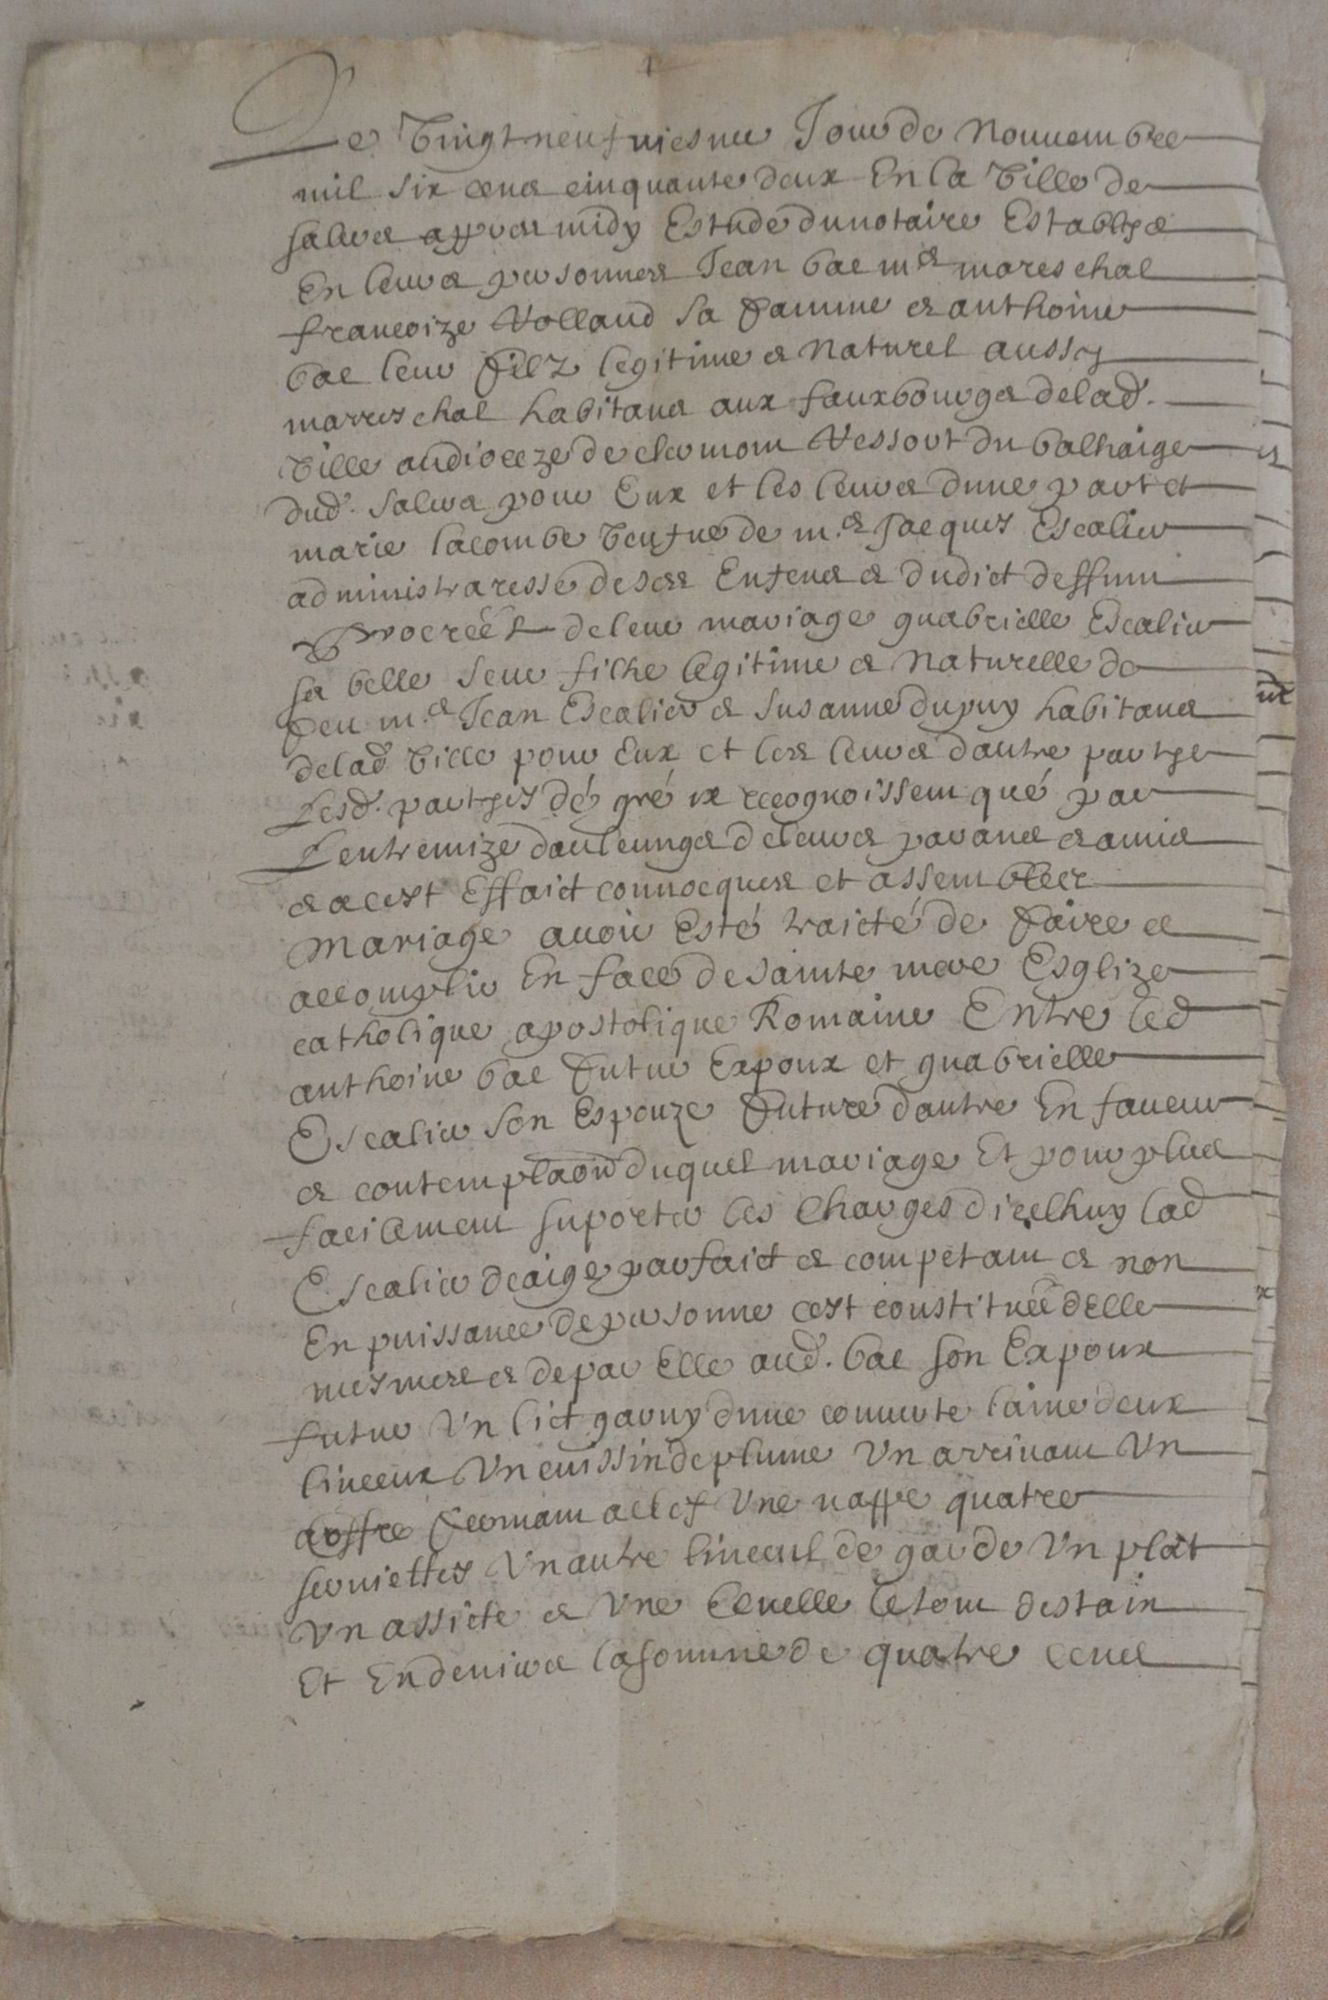 Le vingt neufviesme Jour de Nouvembre
mil six cens cinquante deux En la ville de
salers appres midy Estude du notaire Establys
En leurs personnes Jean bac m.e mareschal
francoize Rolland sa famme et anthoine
bac leur filz legitime et naturel aussy
mareschal habitans aux fauxbourgs de lad.
ville au dioceze de clermom Ressort du balhaige
dud. salers pour Eux et les leurs dune part et
marie lacombe veufve de m.e Jacques Escalier
administraresse de ses Enfens et dudict deffunt
procreés de leur mariage guabrielle Escalier
sa belle seur filhe legitime et naturelle de
feu m.e Jean Escalier et susanne dupuy habitans
de lad. ville pour Eux et les leurs dautre partye
Lesd. partyes dé gré ont recognoissem qué par
Lentremize daulcungs de leurs parans et amis
et a cest Effaict convocques et assembles
mariage avoir Esté traicté de faire et
accomplir En face de sainte mere Esglize
catholique apostolique Romaine Entre led
anthoine bac futur Expoux et guabrielle
Escalier son Espouze future dautre En faveur
et contemplaon duquel mariage Et pour plus
facilemem suporter les charges dicelhuy lad
Escalier de aige parfaict et competam et non
En puissance de personne cest constituée delle
mesmes et de par Elle aud. bac son Expoux
futur Un lict garny dune couverte laine deux
linceux Un cuissin de plume Un arrivam Un
coffre fermam a clef Une nappe quatre
serviettes Un autre linceul de garde Un plat
Un assiete et Une Ecuelle le tout destain
Et En deniers la somme de quatre cens